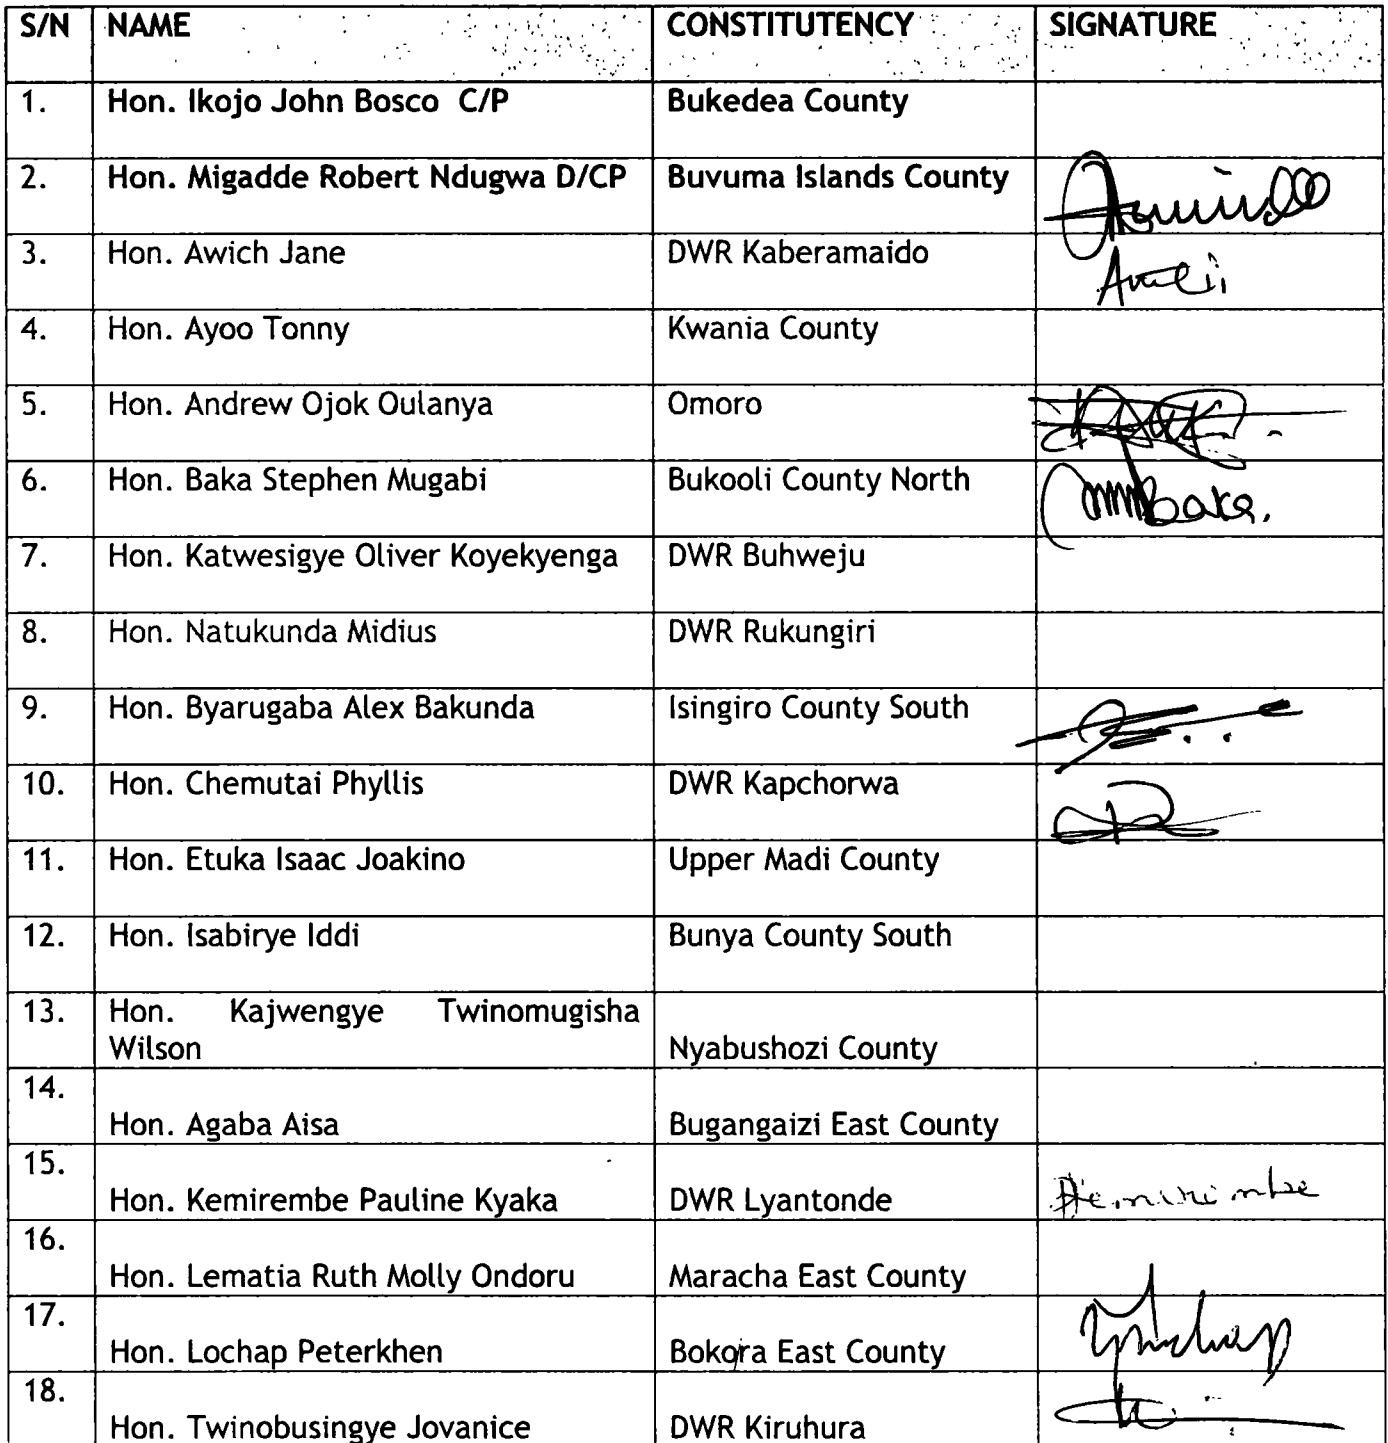 S/N NAME CONSTITUTENCY SIGNATURE
1. Hon. Ikojo John Bosco C/P Bukedea County
2. Hon. Migadde Robert Ndugwa D/CP Buvuma Islands County
3. Hon. Awich Jane DWR Kaberamaido
4. Hon. Ayoo Tonny Kwania County
5. Hon. Andrew Ojok Oulanya Omoro
6. Hon. Baka Stephen Mugabi Bukooli County North
7. Hon. Katwesigye Oliver Koyekyenga DWR Buhweju
8. Hon. Natukunda Midius DWR Rukungiri
9. Hon. Byarugaba Alex Bakunda Isingiro County South
10. Hon. Chemutai Phyllis DWR Kapchorwa
11. Hon. Etuka Isaac Joakino Upper Madi County
12. Hon. Isabirye Iddi Bunya County South
13. Hon. Kajwengye Twinomugisha
Wilson Nyabushozi County
14.
Hon. Agaba Aisa Bugangaizi East County
15.
Hon. Kemirembe Pauline Kyaka DWR Lyantonde
16.
Hon. Lematia Ruth Molly Ondoru Maracha East County
17.
Hon. Lochap Peterkhen Bokora East County
18.
Hon. Twinobusingye Jovanice DWR Kiruhura